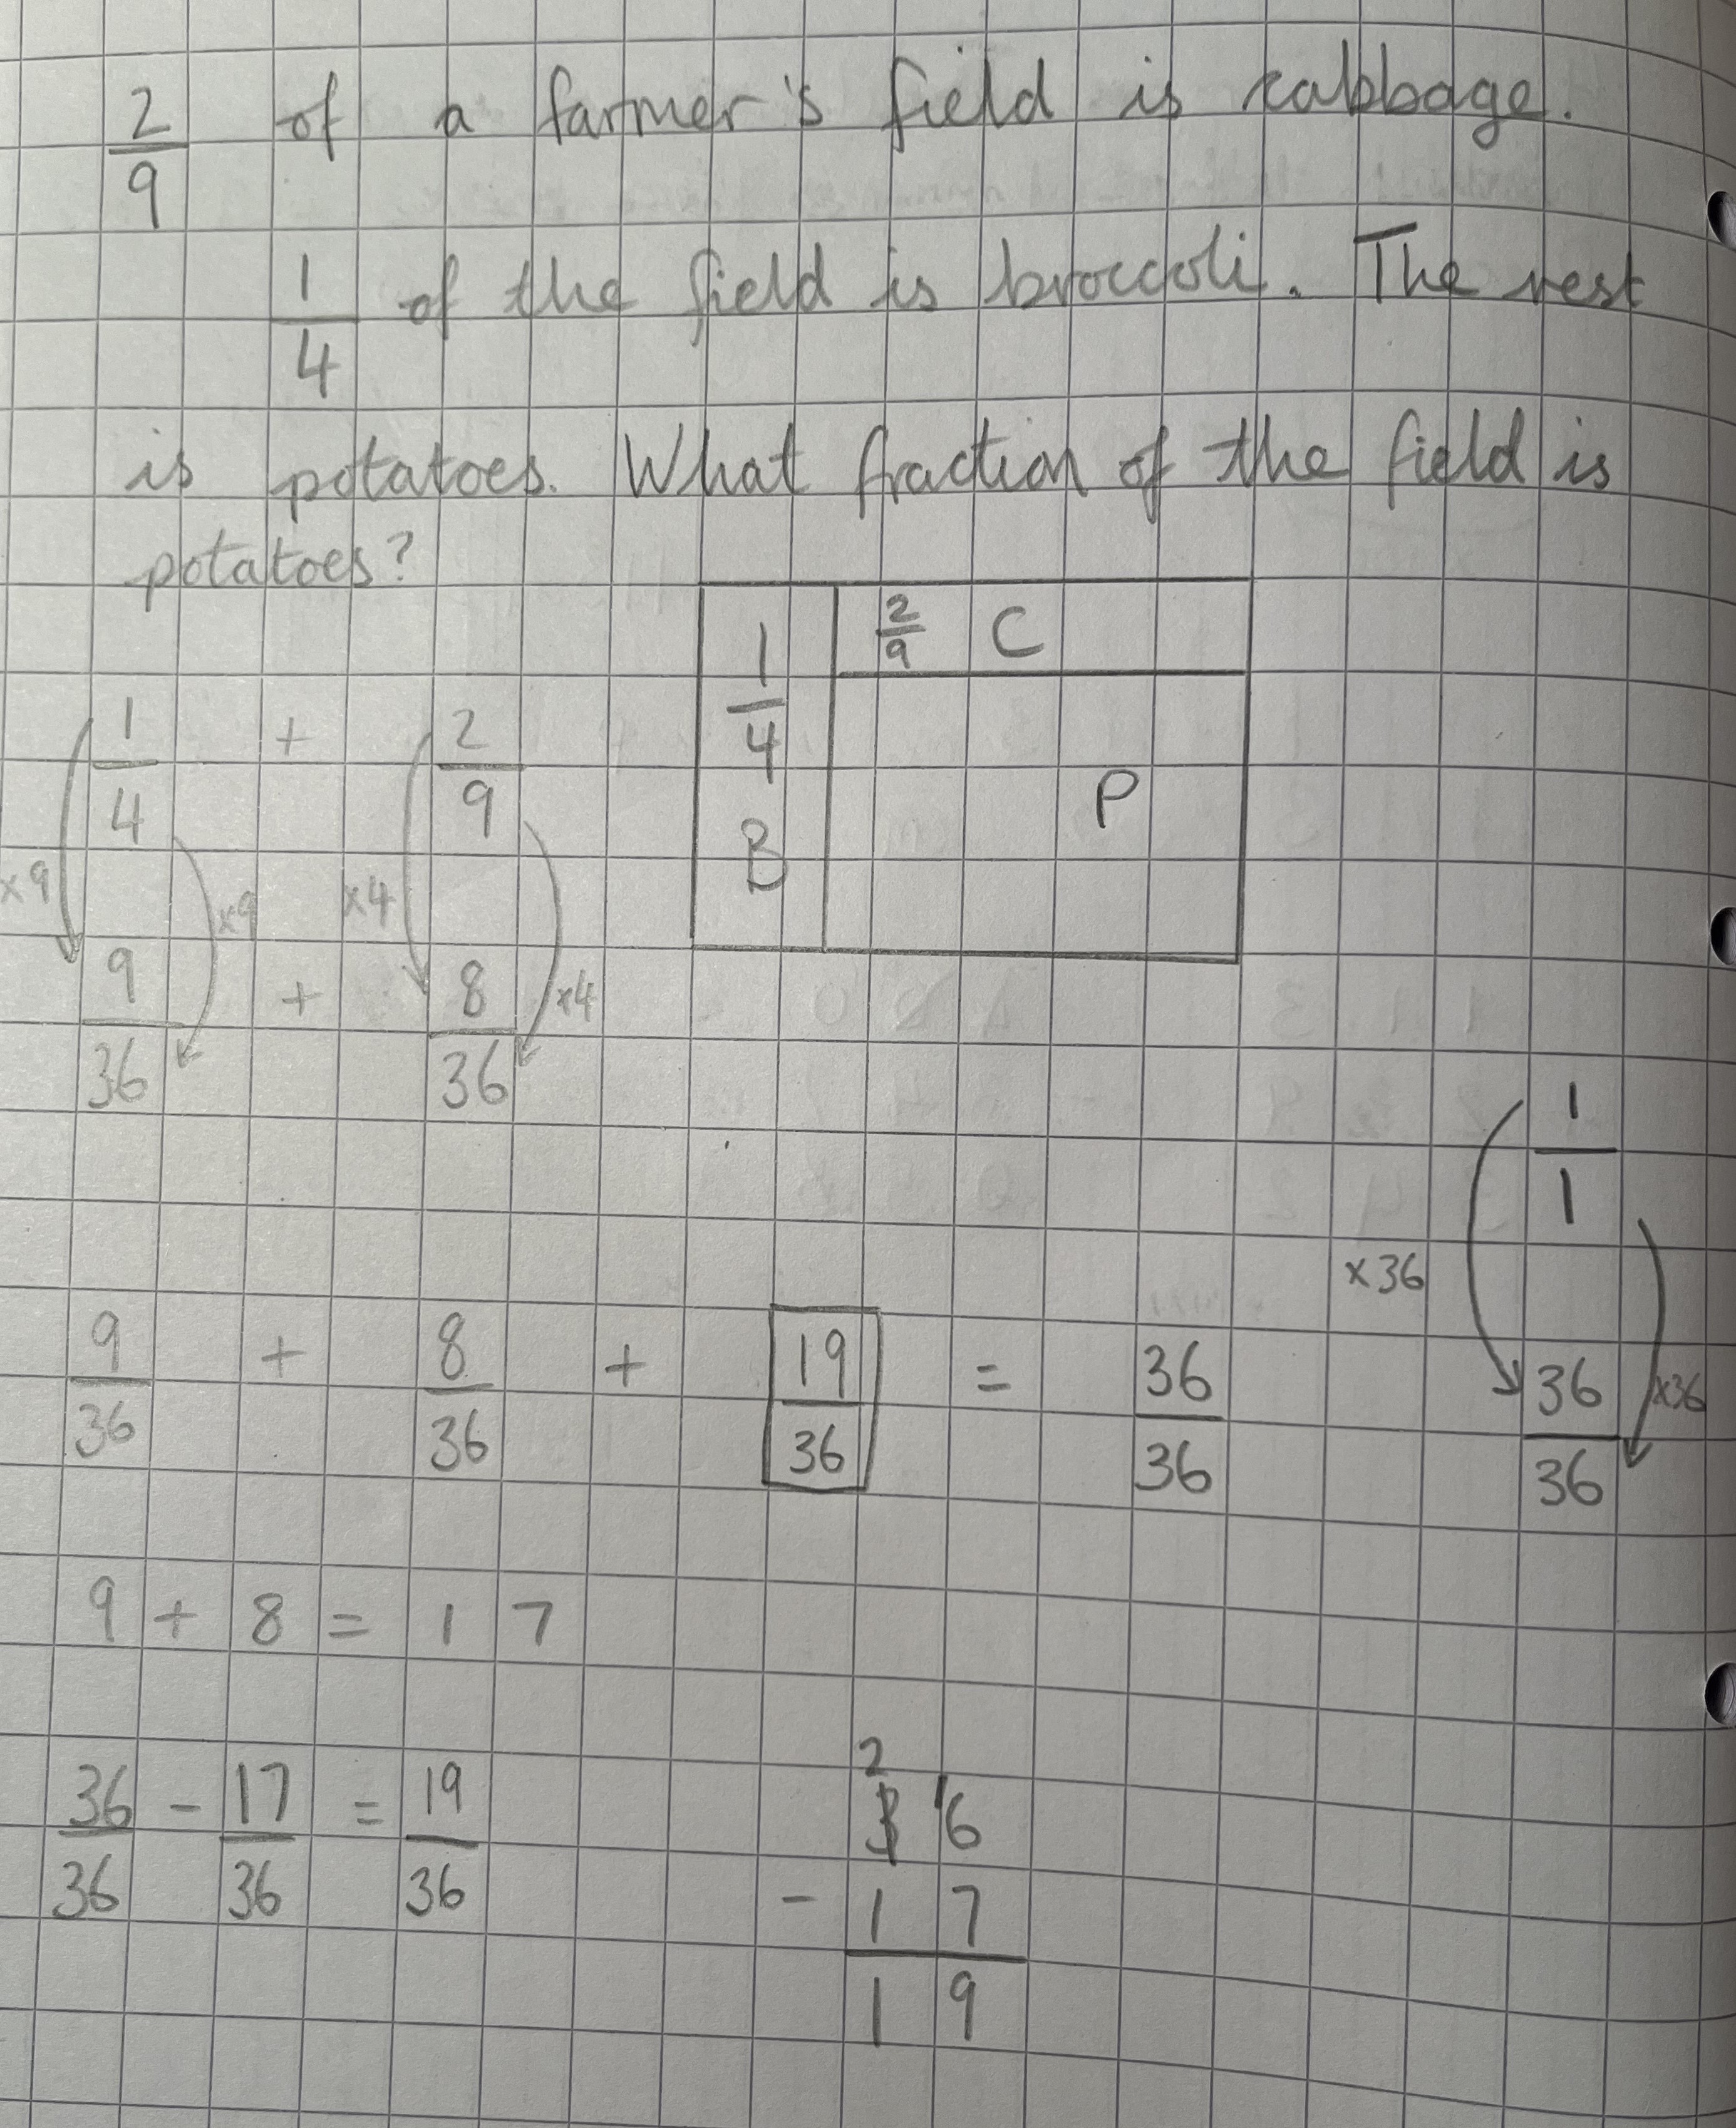 2/9 of a farmer's field is cabbage.
1/4 of the field is broccoli. The rest
is potatoes. What fraction of the field is
potatoes?
2/9 C
1/4
B
P
1/4 + 2/9
x9 x9 x4 x4
9/36 + 8/36
1/1
x36 x36
36/36
9/36 + 8/36 + 19/36 = 36/36
9 + 8 = 17
36/36 - 17/36 = 19/36
2
3 16
- 1 7
1 9